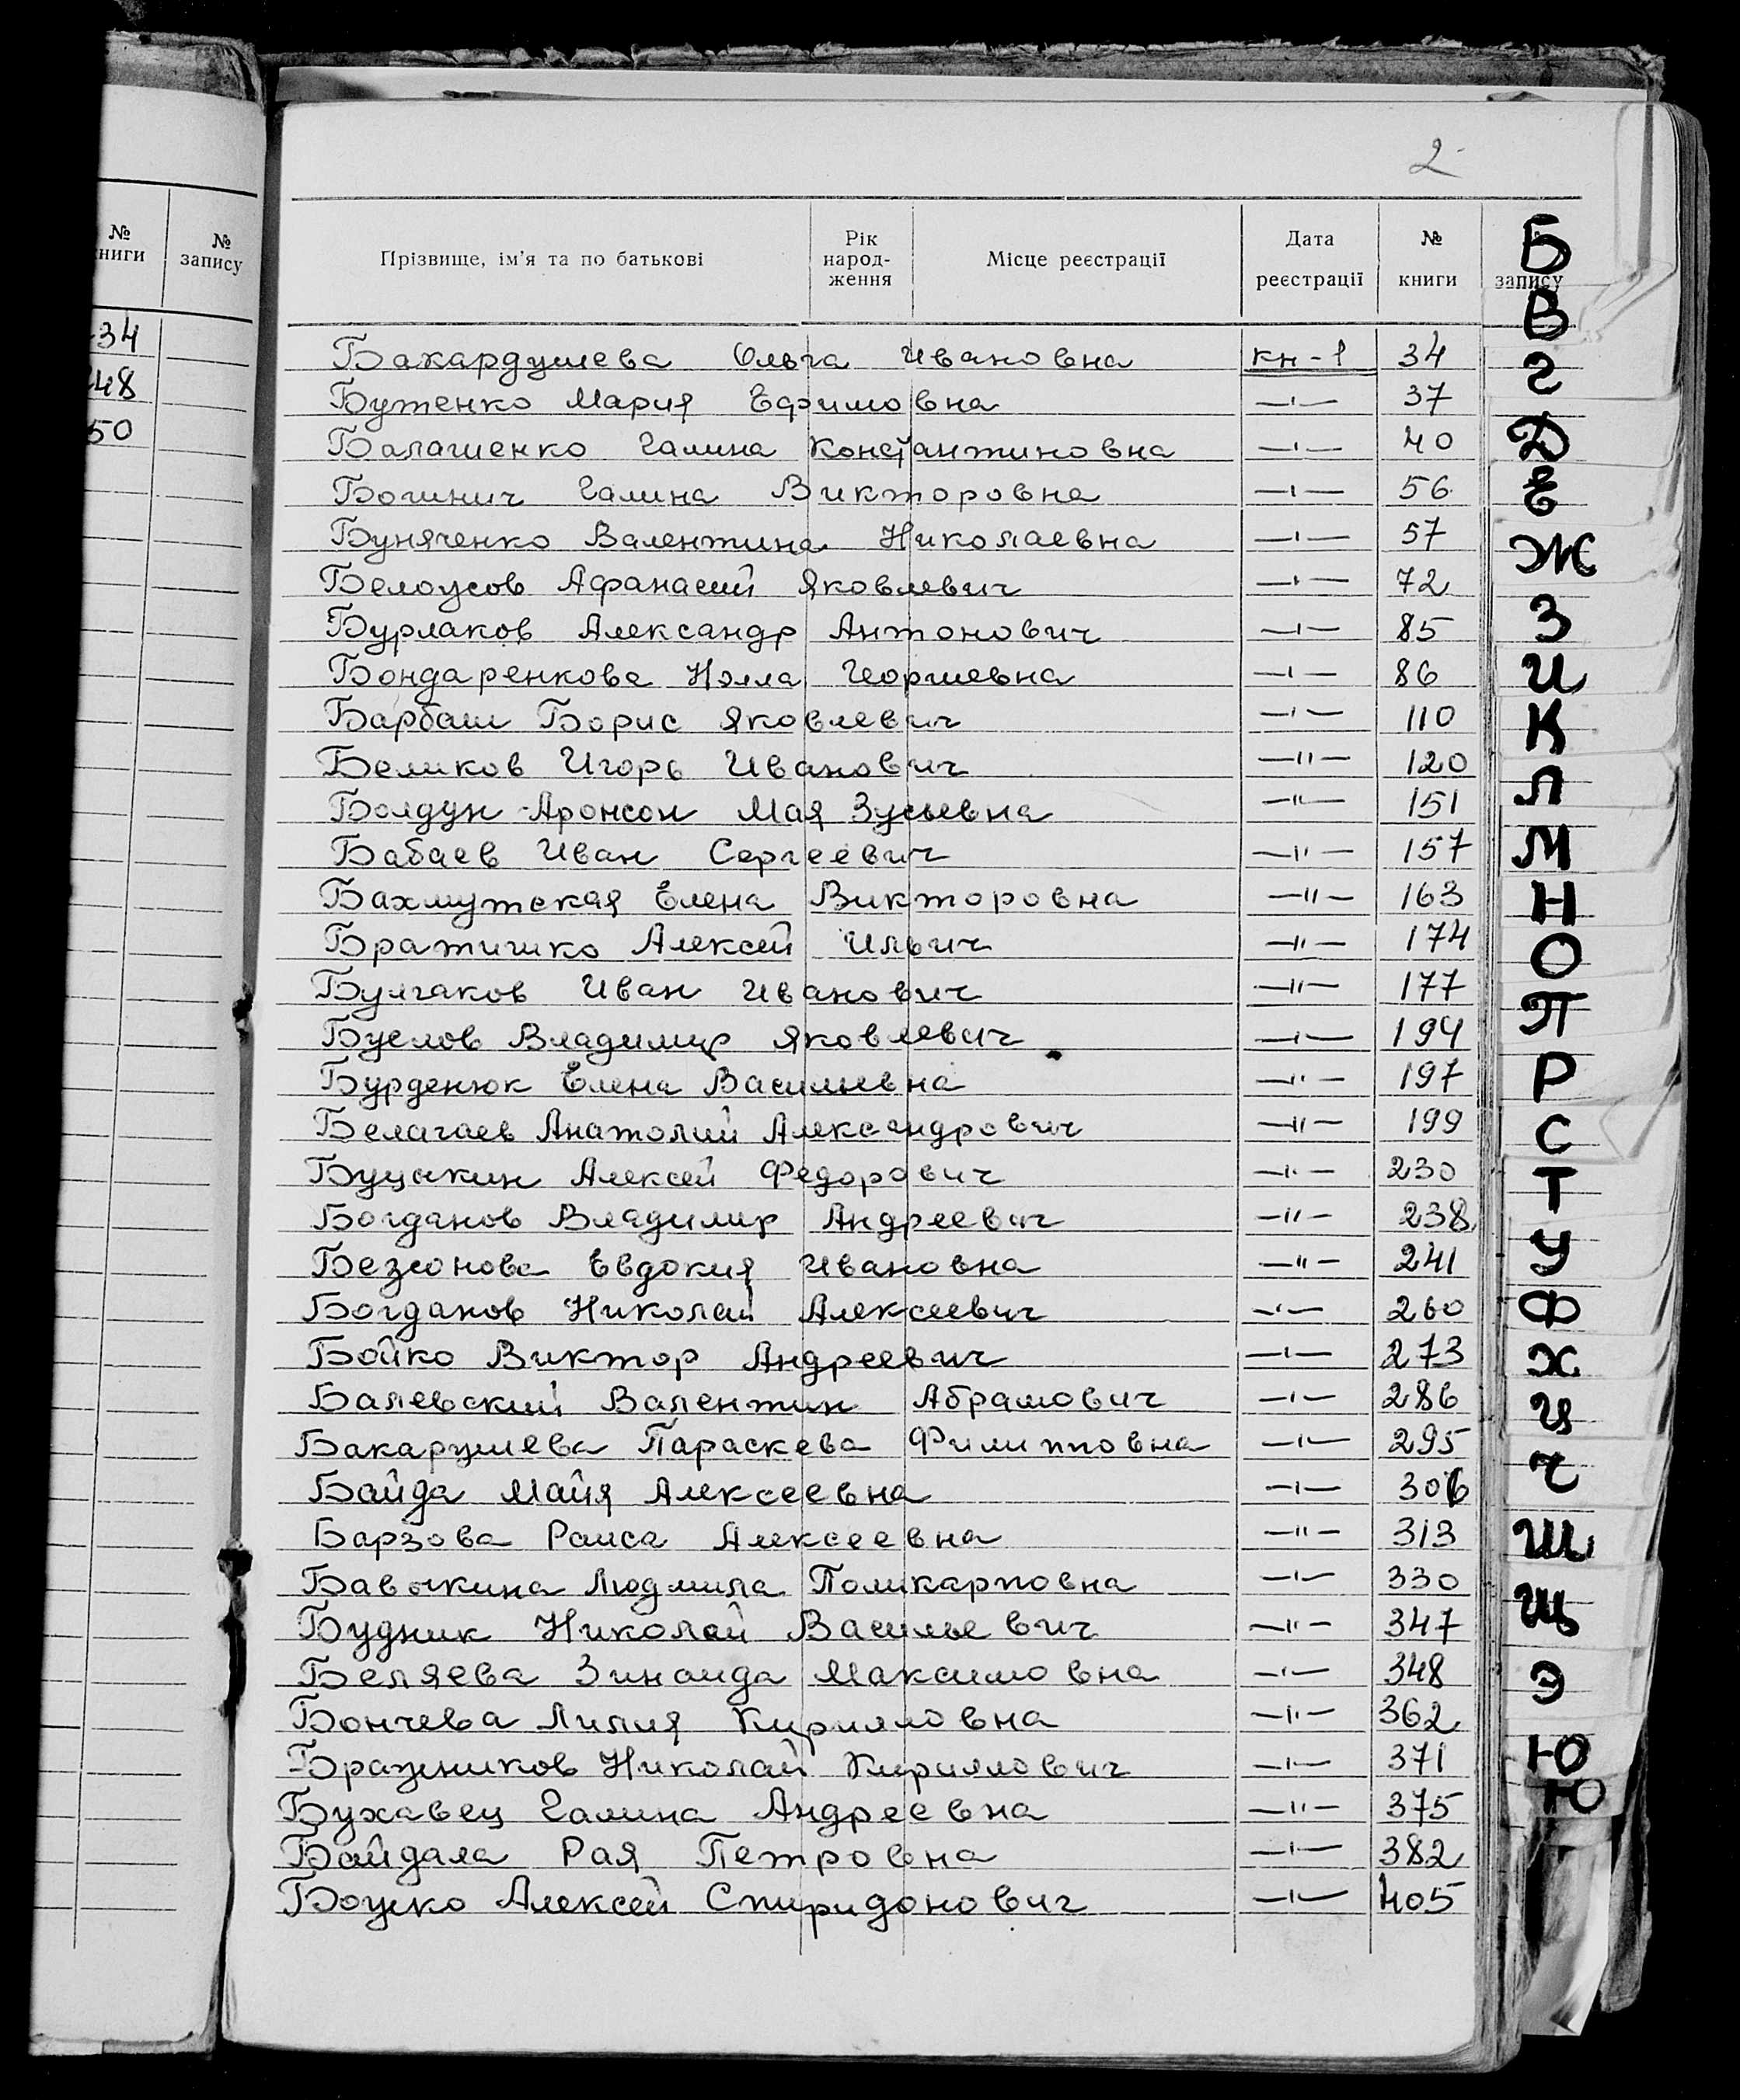 № книги
№ запису
34
48
50
2
Прізвище, ім'я та по батькові
Рік народ- ження
Місце реєстрації
Дата реєстрації
№ книги
запису
Бакардушева Ольга Ивановна кн-1 34
Бутенко Мария Ефимовна —"— 37
Балашенко Галина Константиновна —"— 40
Богинич Галина Викторовна —"— 56
Буняченко Валентина Николаевна —"— 57
Белоусов Афанасий Яковлевич —"— 72
Бурлаков Александр Антонович —"— 85
Бондаренкова Нэлла Георгиевна —"— 86
Барбаш Борис Яковлевич —"— 110
Беликов Игорь Иванович —"— 120
Болдун-Аронсон Мая Зусьевна —"— 151
Бабаев Иван Сергеевич —"— 157
Бахмутская Елена Викторовна —"— 163
Братишко Алексей Ильич —"— 174
Булгаков Иван Иванович —"— 177
Буслов Владимир Яковлевич —"— 194
Бурденюк Елена Васильевна —"— 197
Белагаев Анатолий Александрович —"— 199
Буцыкин Алексей Федорович —"— 230
Богданов Владимир Андреевич —"— 238
Безсонова Евдокия Ивановна —"— 241
Богданов Николай Алексеевич —"— 260
Бойко Виктор Андреевич —"— 273
Балевский Валентин Абрамович —"— 286
Бакарушева Параскева Филипповна —"— 295
Байда Майя Алексеевна —"— 306
Барзова Раиса Алексеевна —"— 313
Бавыкина Людмила Поликарповна —"— 330
Будник Николай Васильевич —"— 347
Беляева Зинаида Максимовна —"— 348
Бончева Лилия Кирилловна —"— 362
Бражников Николай Кириллович —"— 371
Бухавец Галина Андреевна —"— 375
Байдала Рая Петровна —"— 382
Боцко Алексей Спиридонович —"— 405
Б
В
Г
Д
Е
Ж
З
И
К
Л
М
Н
О
П
Р
С
Т
У
Ф
Х
Ц
Ч
Ш
Щ
Э
Ю
Ю